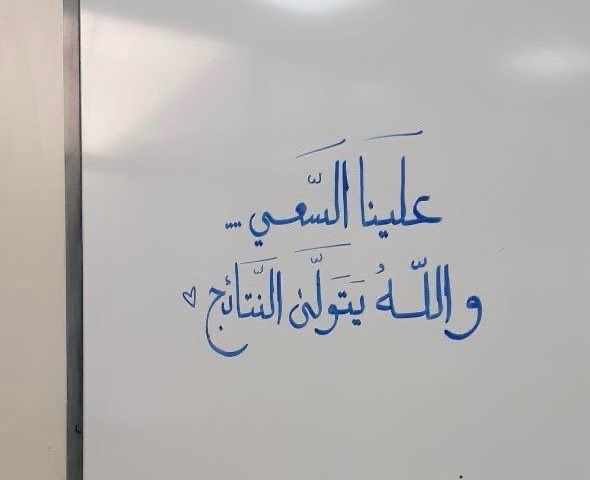 علَينا السَّعي ....
واللّهُ يَتَولَّىٰ النَّتائج ♡